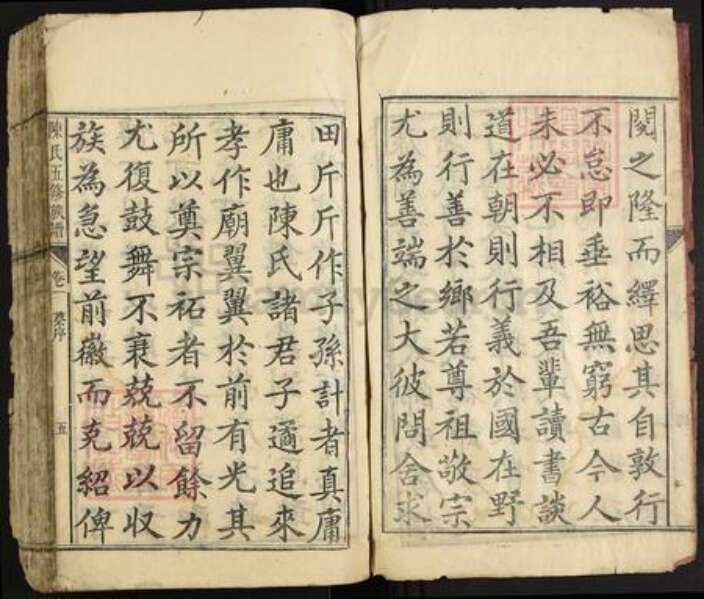 閱之隆而繹思其自敦行
不怠即垂裕無窮古今人
未必不相及吾輩讀書談
道在朝則行義於國在野
則行善於鄉若尊祖敬宗
尤為善端之大彼問舍求
田斤斤作子孫計者真庸
庸也陳氏諸君子遹追來
孝作廟翼翼於前有光其
所以奠宗祏者不留餘力
尤復鼓舞不衰兢兢以收
族為急望前徽而克紹俾
陳氏五修族譜
卷一
五